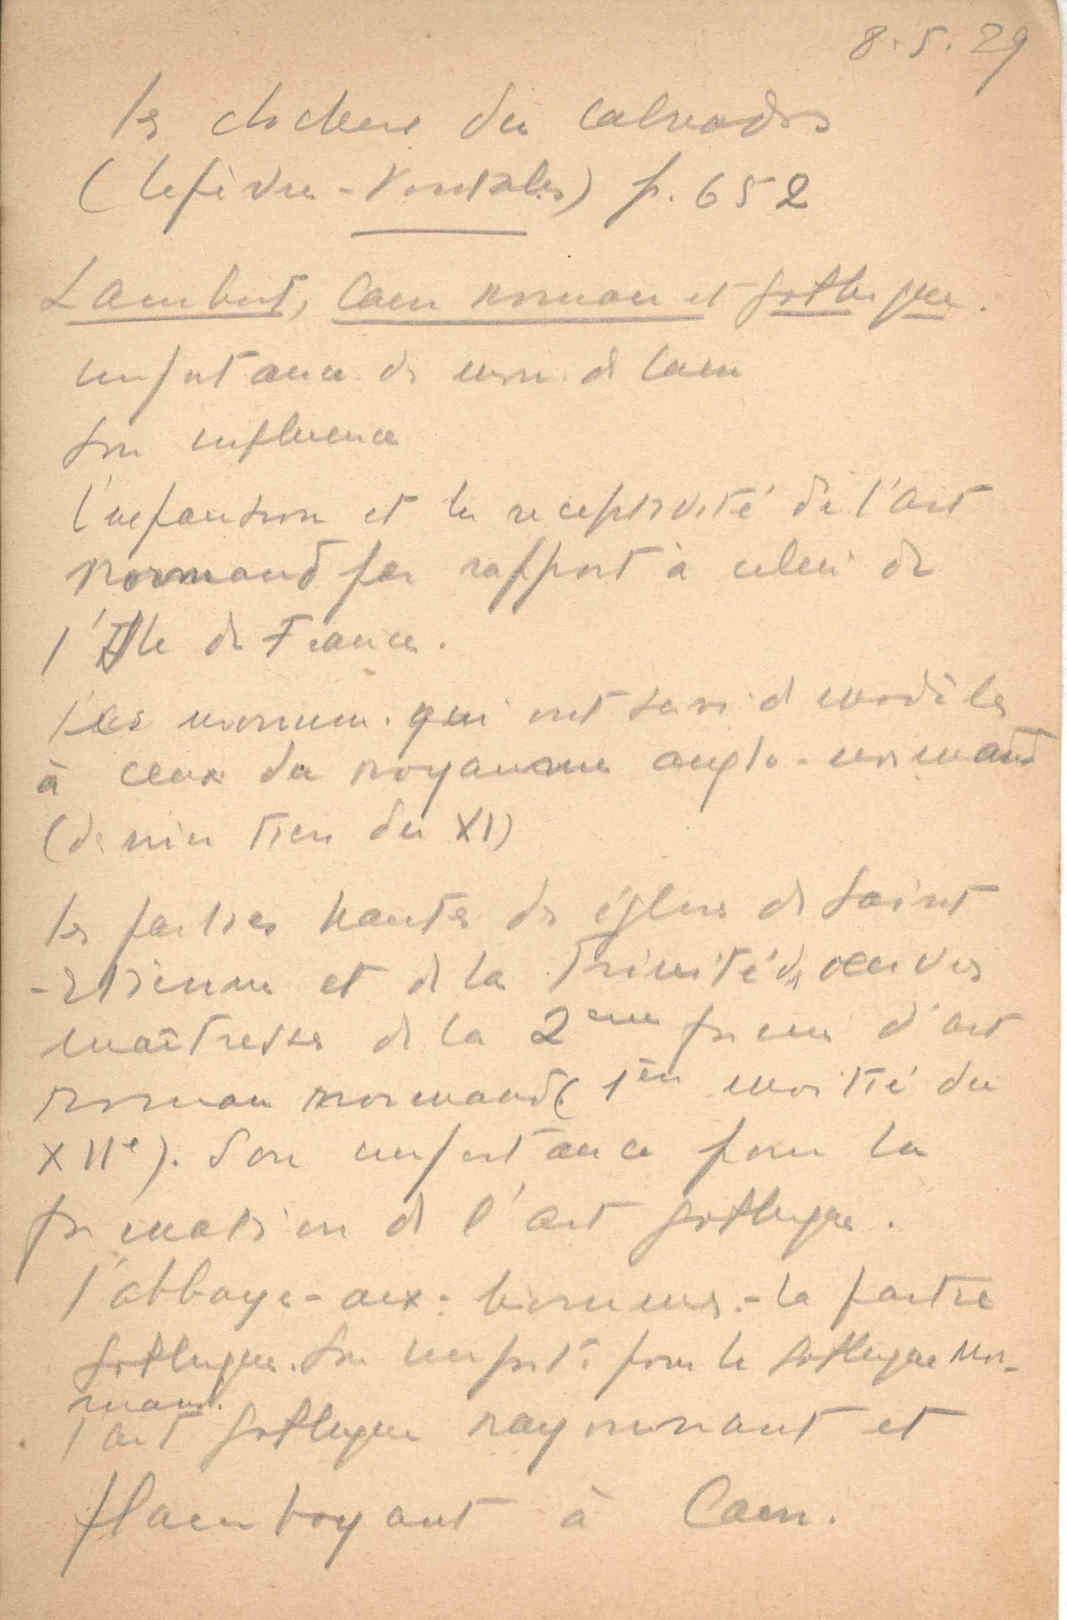 8.5.29
les clochers du Calvados
(Lefèvre-Pontalis) p. 652
Lambert, Caen roman et gothique.
importance de mon. de Caen
Son influence
l'expansion et la receptivité de l'art
normand par rapport à celui de
l'Ile de France.
Les monum. qui ont servi d modèles
à ceux du royaume anglo-normand
(dernier tiers du XI)
les parties hautes des églises de Saint
-Etienne et de la Trinité, oeuvres
maîtresses de la 2eme forme d'art
roman normand (1ère moitié du
XIIe). Son importance pour la
formation de l'art gothique.
l'abbaye-aux-hommes.- la partie
gothique. Son import. pour le gothique nor-
mand.
l'art gothique rayonnant et
flamboyant à Caen.